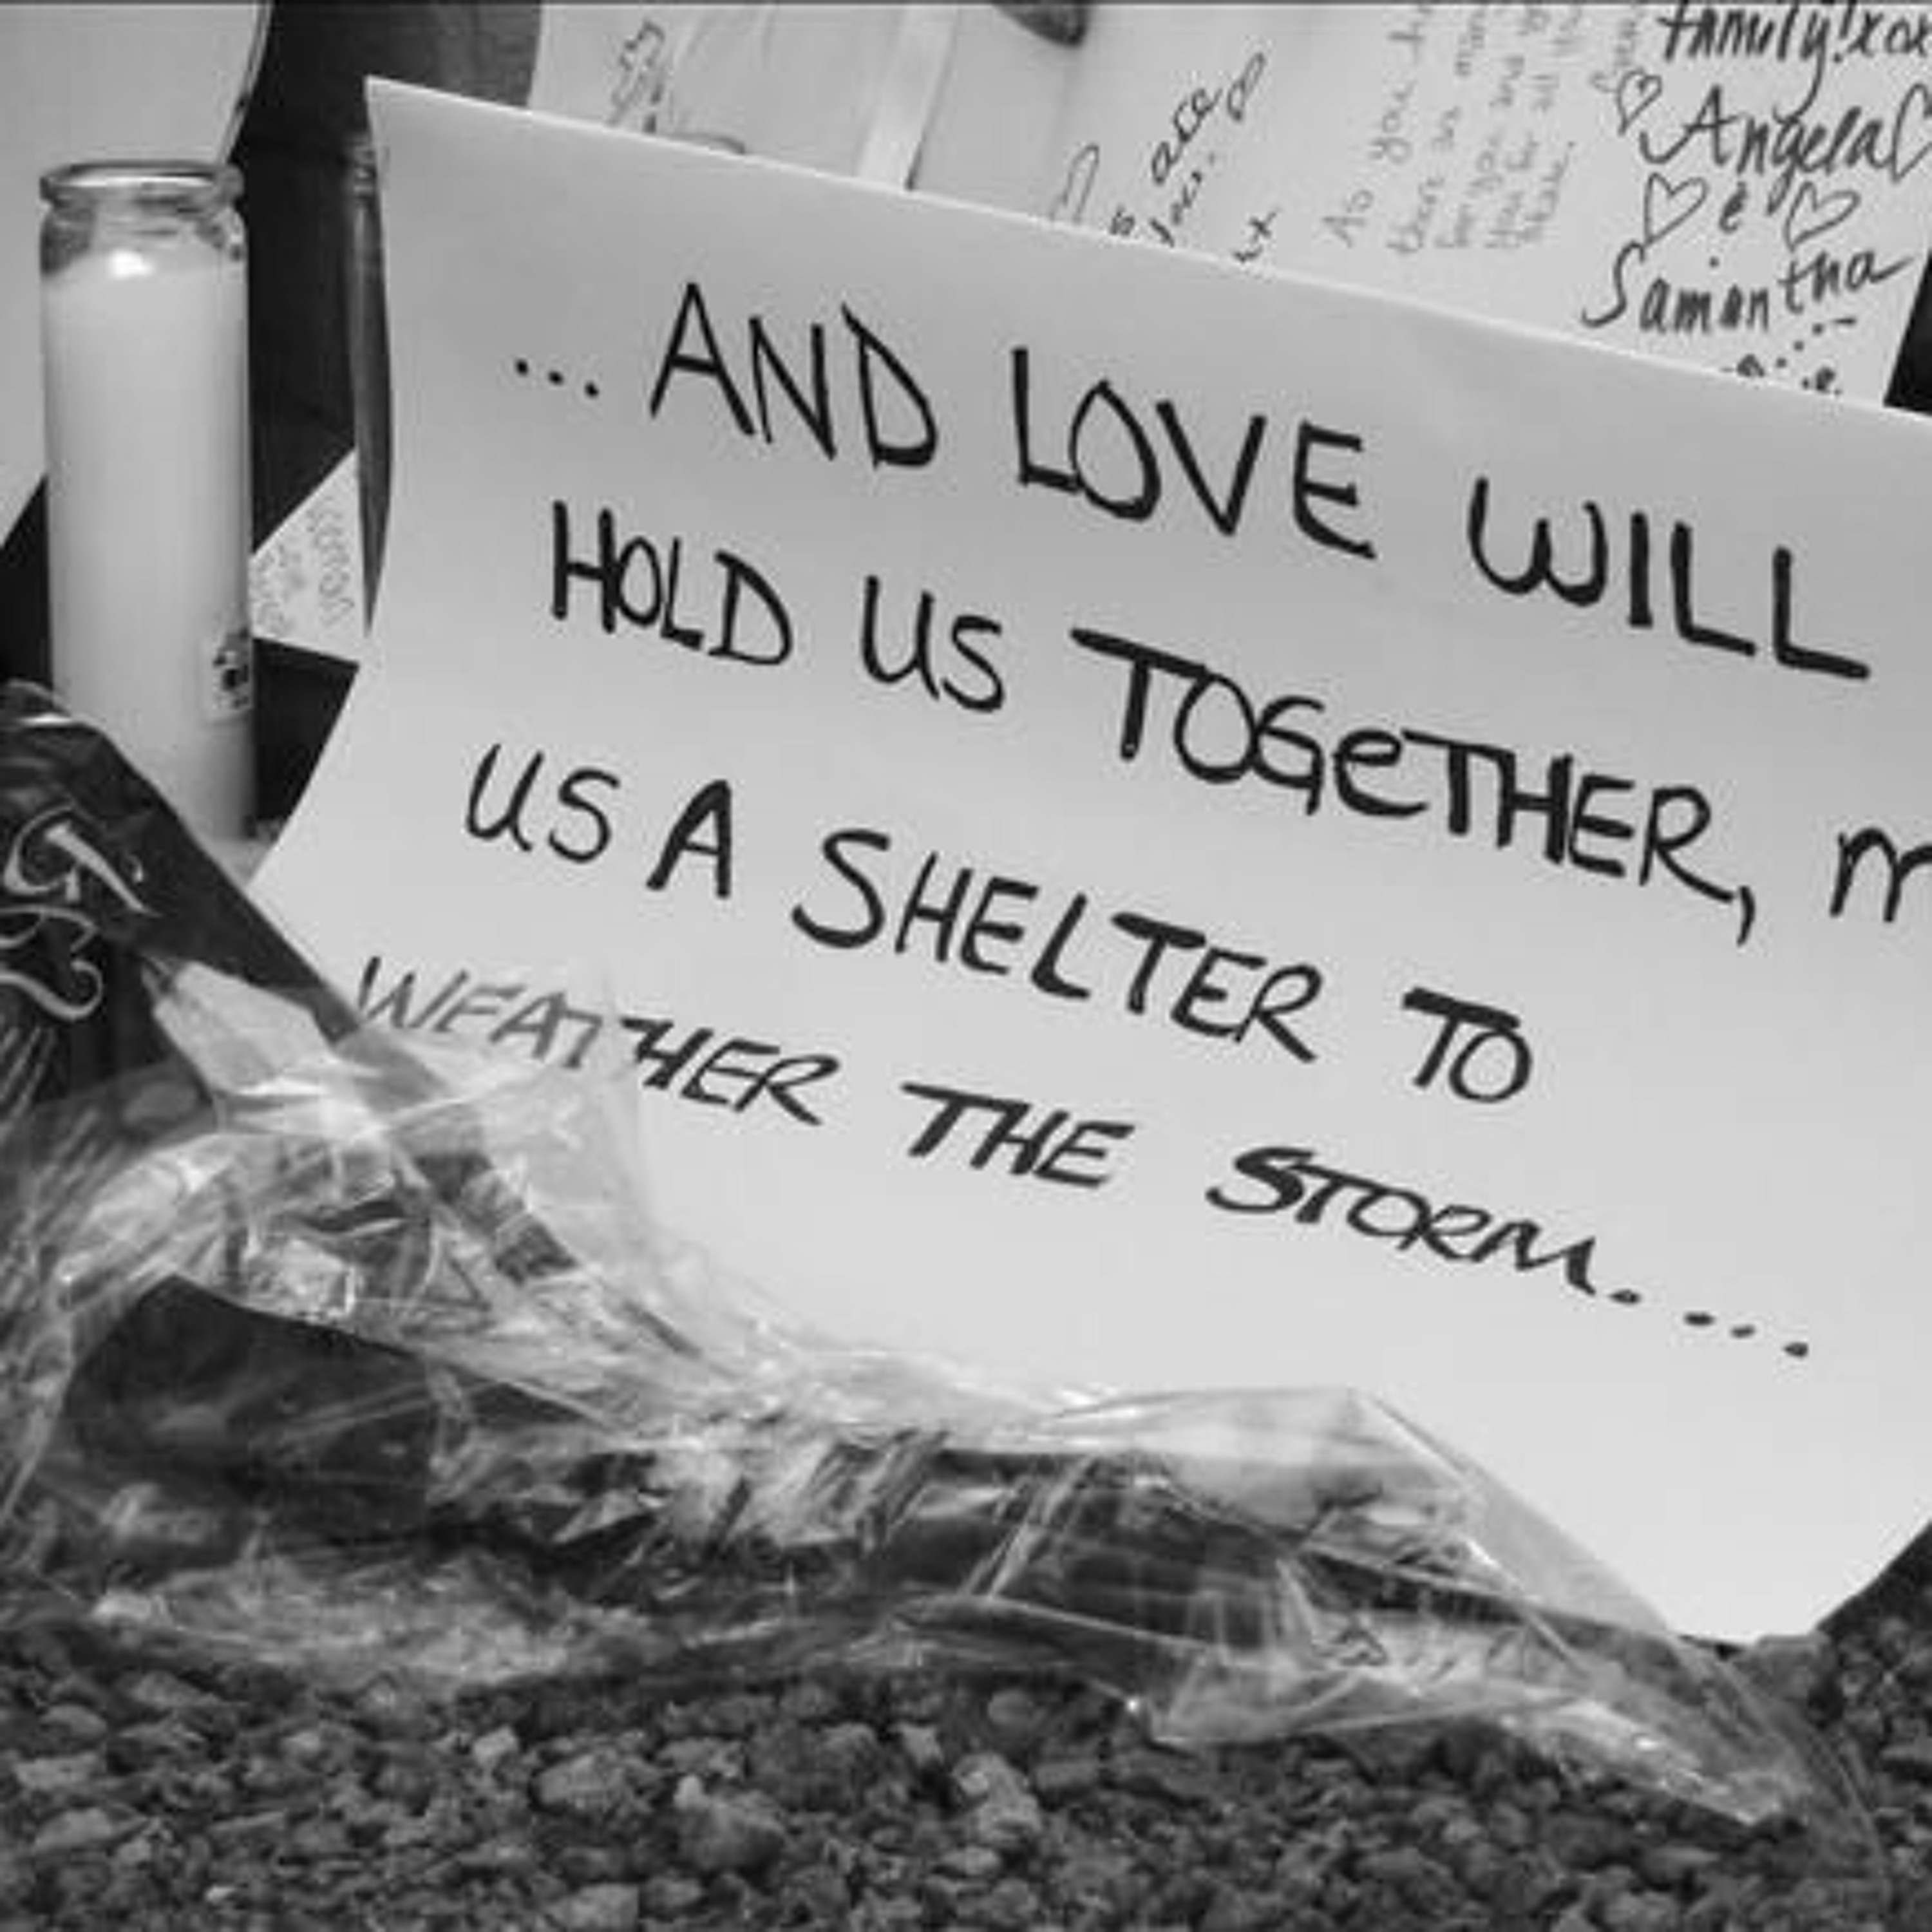 family! xox
Angela
&
Samantha
As you
... AND LOVE WILL
HOLD US TOGETHER, M
US A SHELTER TO
WEATHER THE STORM....